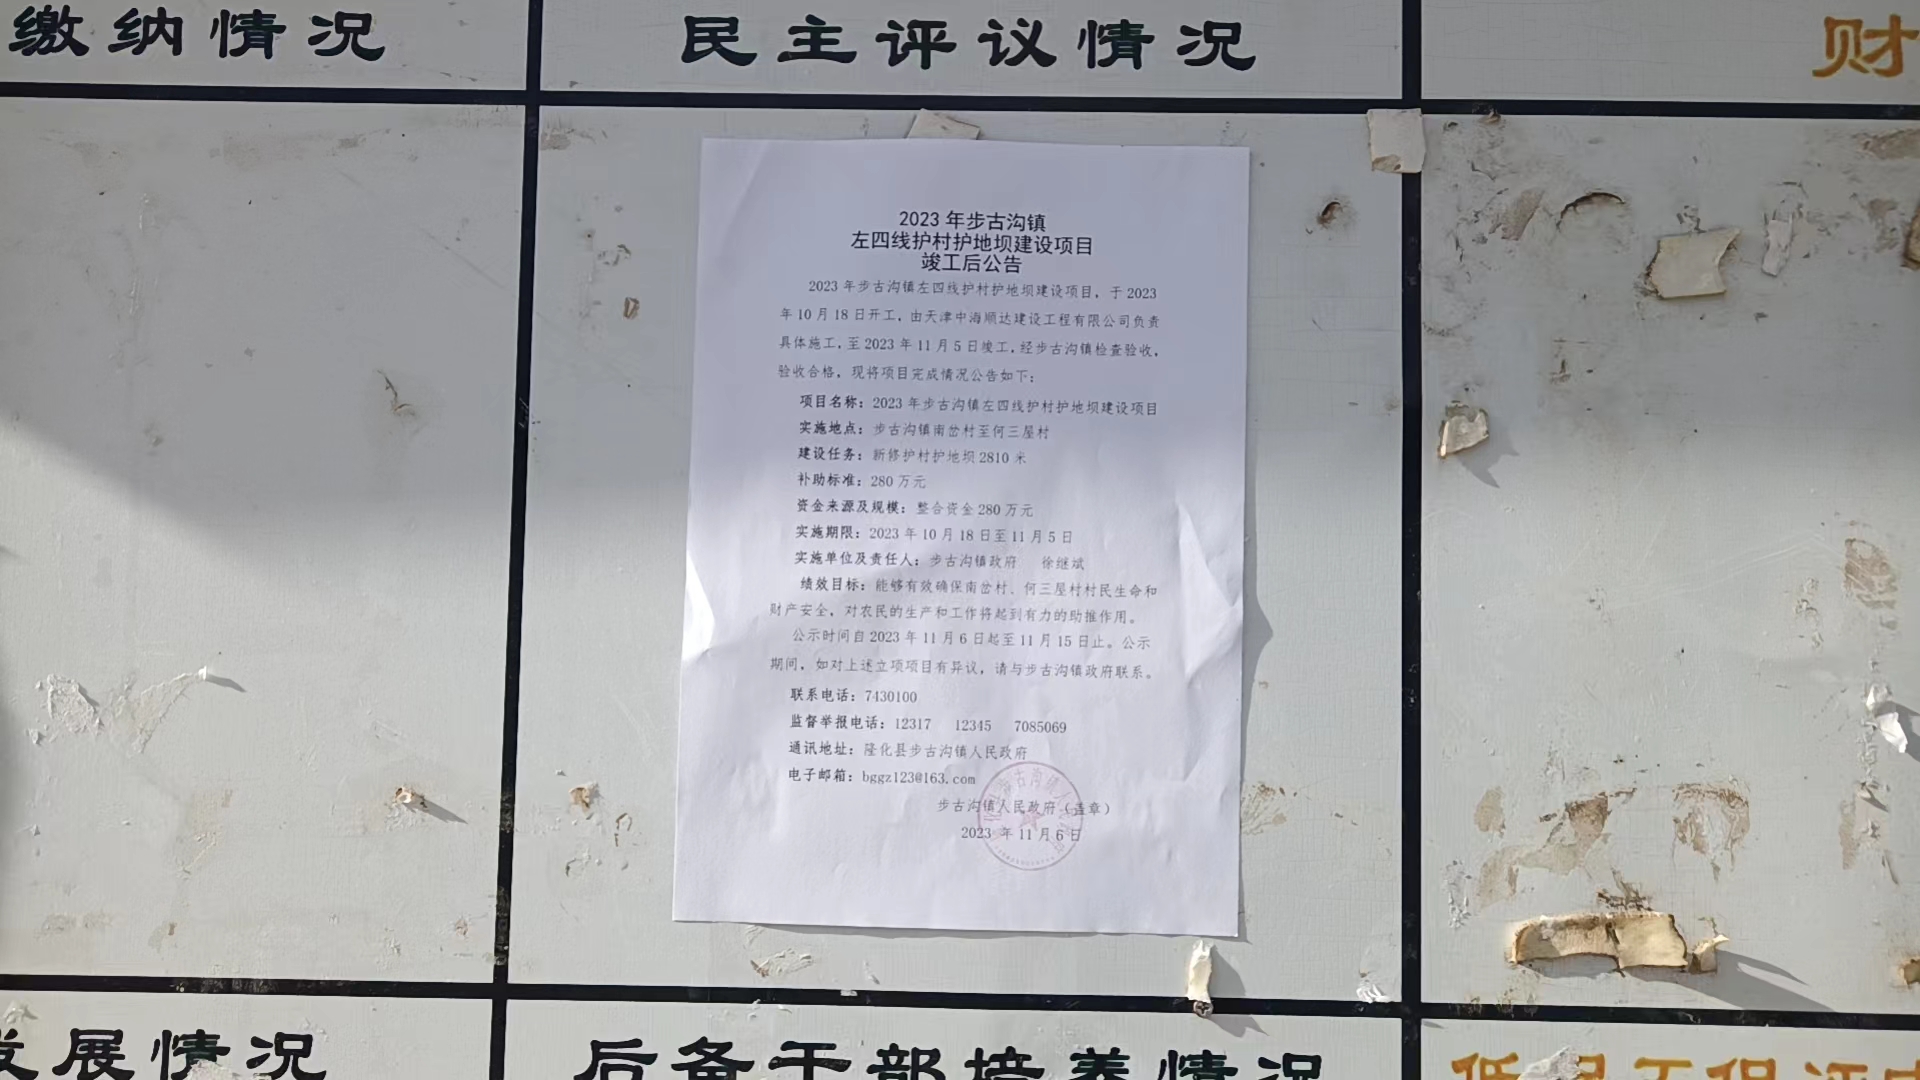 缴纳情况
民主评议情况
财
2023年步古沟镇
左四线护村护地坝建设项目
竣工后公告
2023年步古沟镇左四线护村护地坝建设项目，于2023
年10月18日开工，由天津中海顺达建设工程有限公司负责
具体施工，至2023年11月5日竣工，经步古沟镇检查验收，
验收合格，现将项目完成情况公告如下：
项目名称：2023年步古沟镇左四线护村护地坝建设项目
实施地点：步古沟镇南岔村至何三屋村
建设任务：新修护村护地坝2810米
补助标准：280万元
资金来源及规模：整合资金280万元
实施期限：2023年10月18日至11月5日
实施单位及责任人：步古沟镇政府 徐继斌
绩效目标：能够有效确保南岔村、何三屋村村民生命和
财产安全，对农民的生产和工作将起到有力的助推作用。
公示时间自2023年11月6日起至11月15日止。公示
期间，如对上述立项项目有异议，请与步古沟镇政府联系。
联系电话：7430100
监督举报电话：12317 12345 7085069
通讯地址：隆化县步古沟镇人民政府
电子邮箱：bggz123@163.com
步古沟镇人民政府（盖章）
2023年11月6日
发展情况
后备干部培养情况